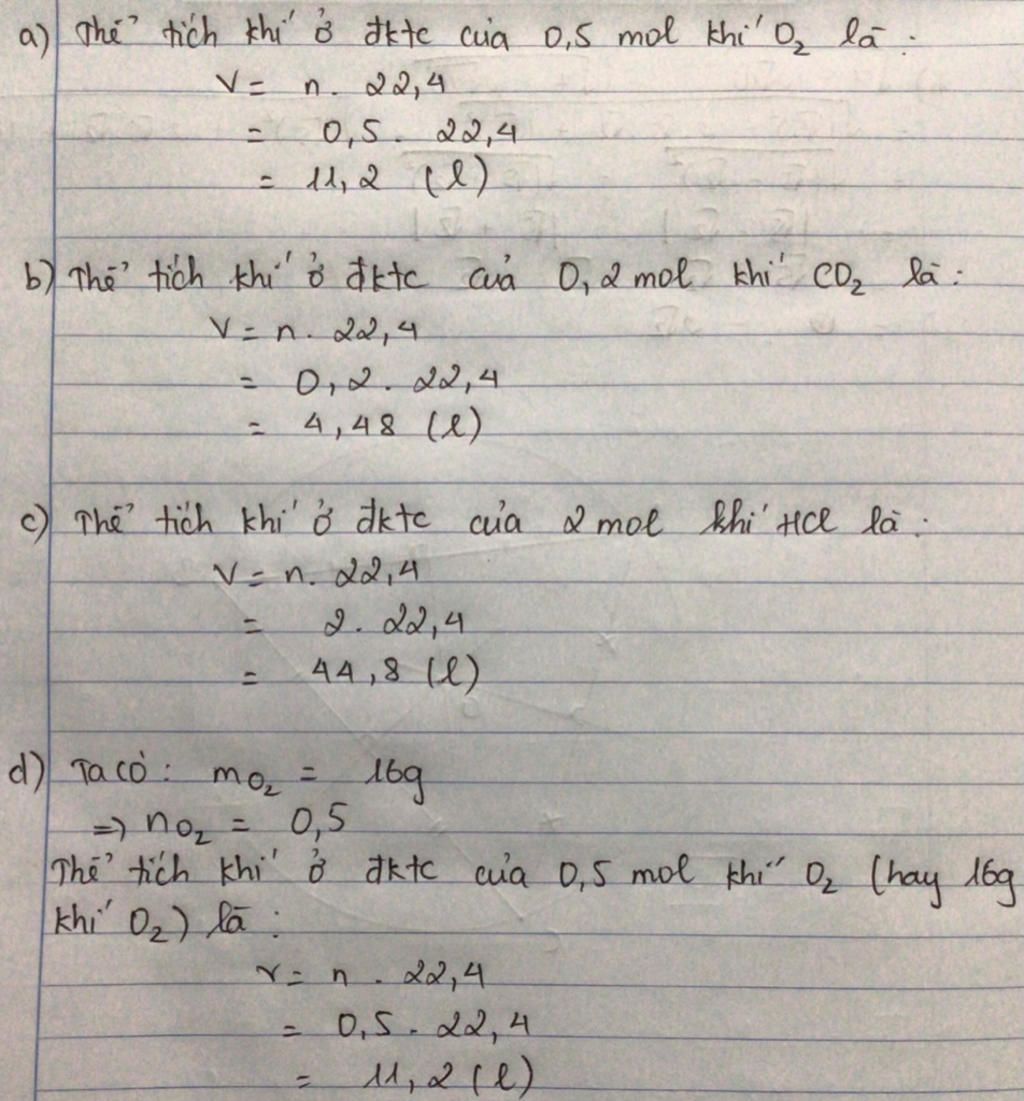 a) Thể tích khí ở đktc của 0,5 mol khí O₂ là :
V = n. 22,4
= 0,5. 22,4
= 11,2 (l)
b) Thể tích khí ở đktc của 0,2 mol khí CO₂ là :
V = n. 22,4
= 0,2. 22,4
= 4,48 (l)
c) Thể tích khí ở đktc của 2 mol khí HCl là :
V = n. 22,4
= 2. 22,4
= 44,8 (l)
d) Ta có : mO₂ = 16g
=> nO₂ = 0,5
Thể tích khí ở đktc của 0,5 mol khí O₂ (hay 16g
khí O₂) là :
V = n . 22,4
= 0,5. 22,4
= 11,2 (l)